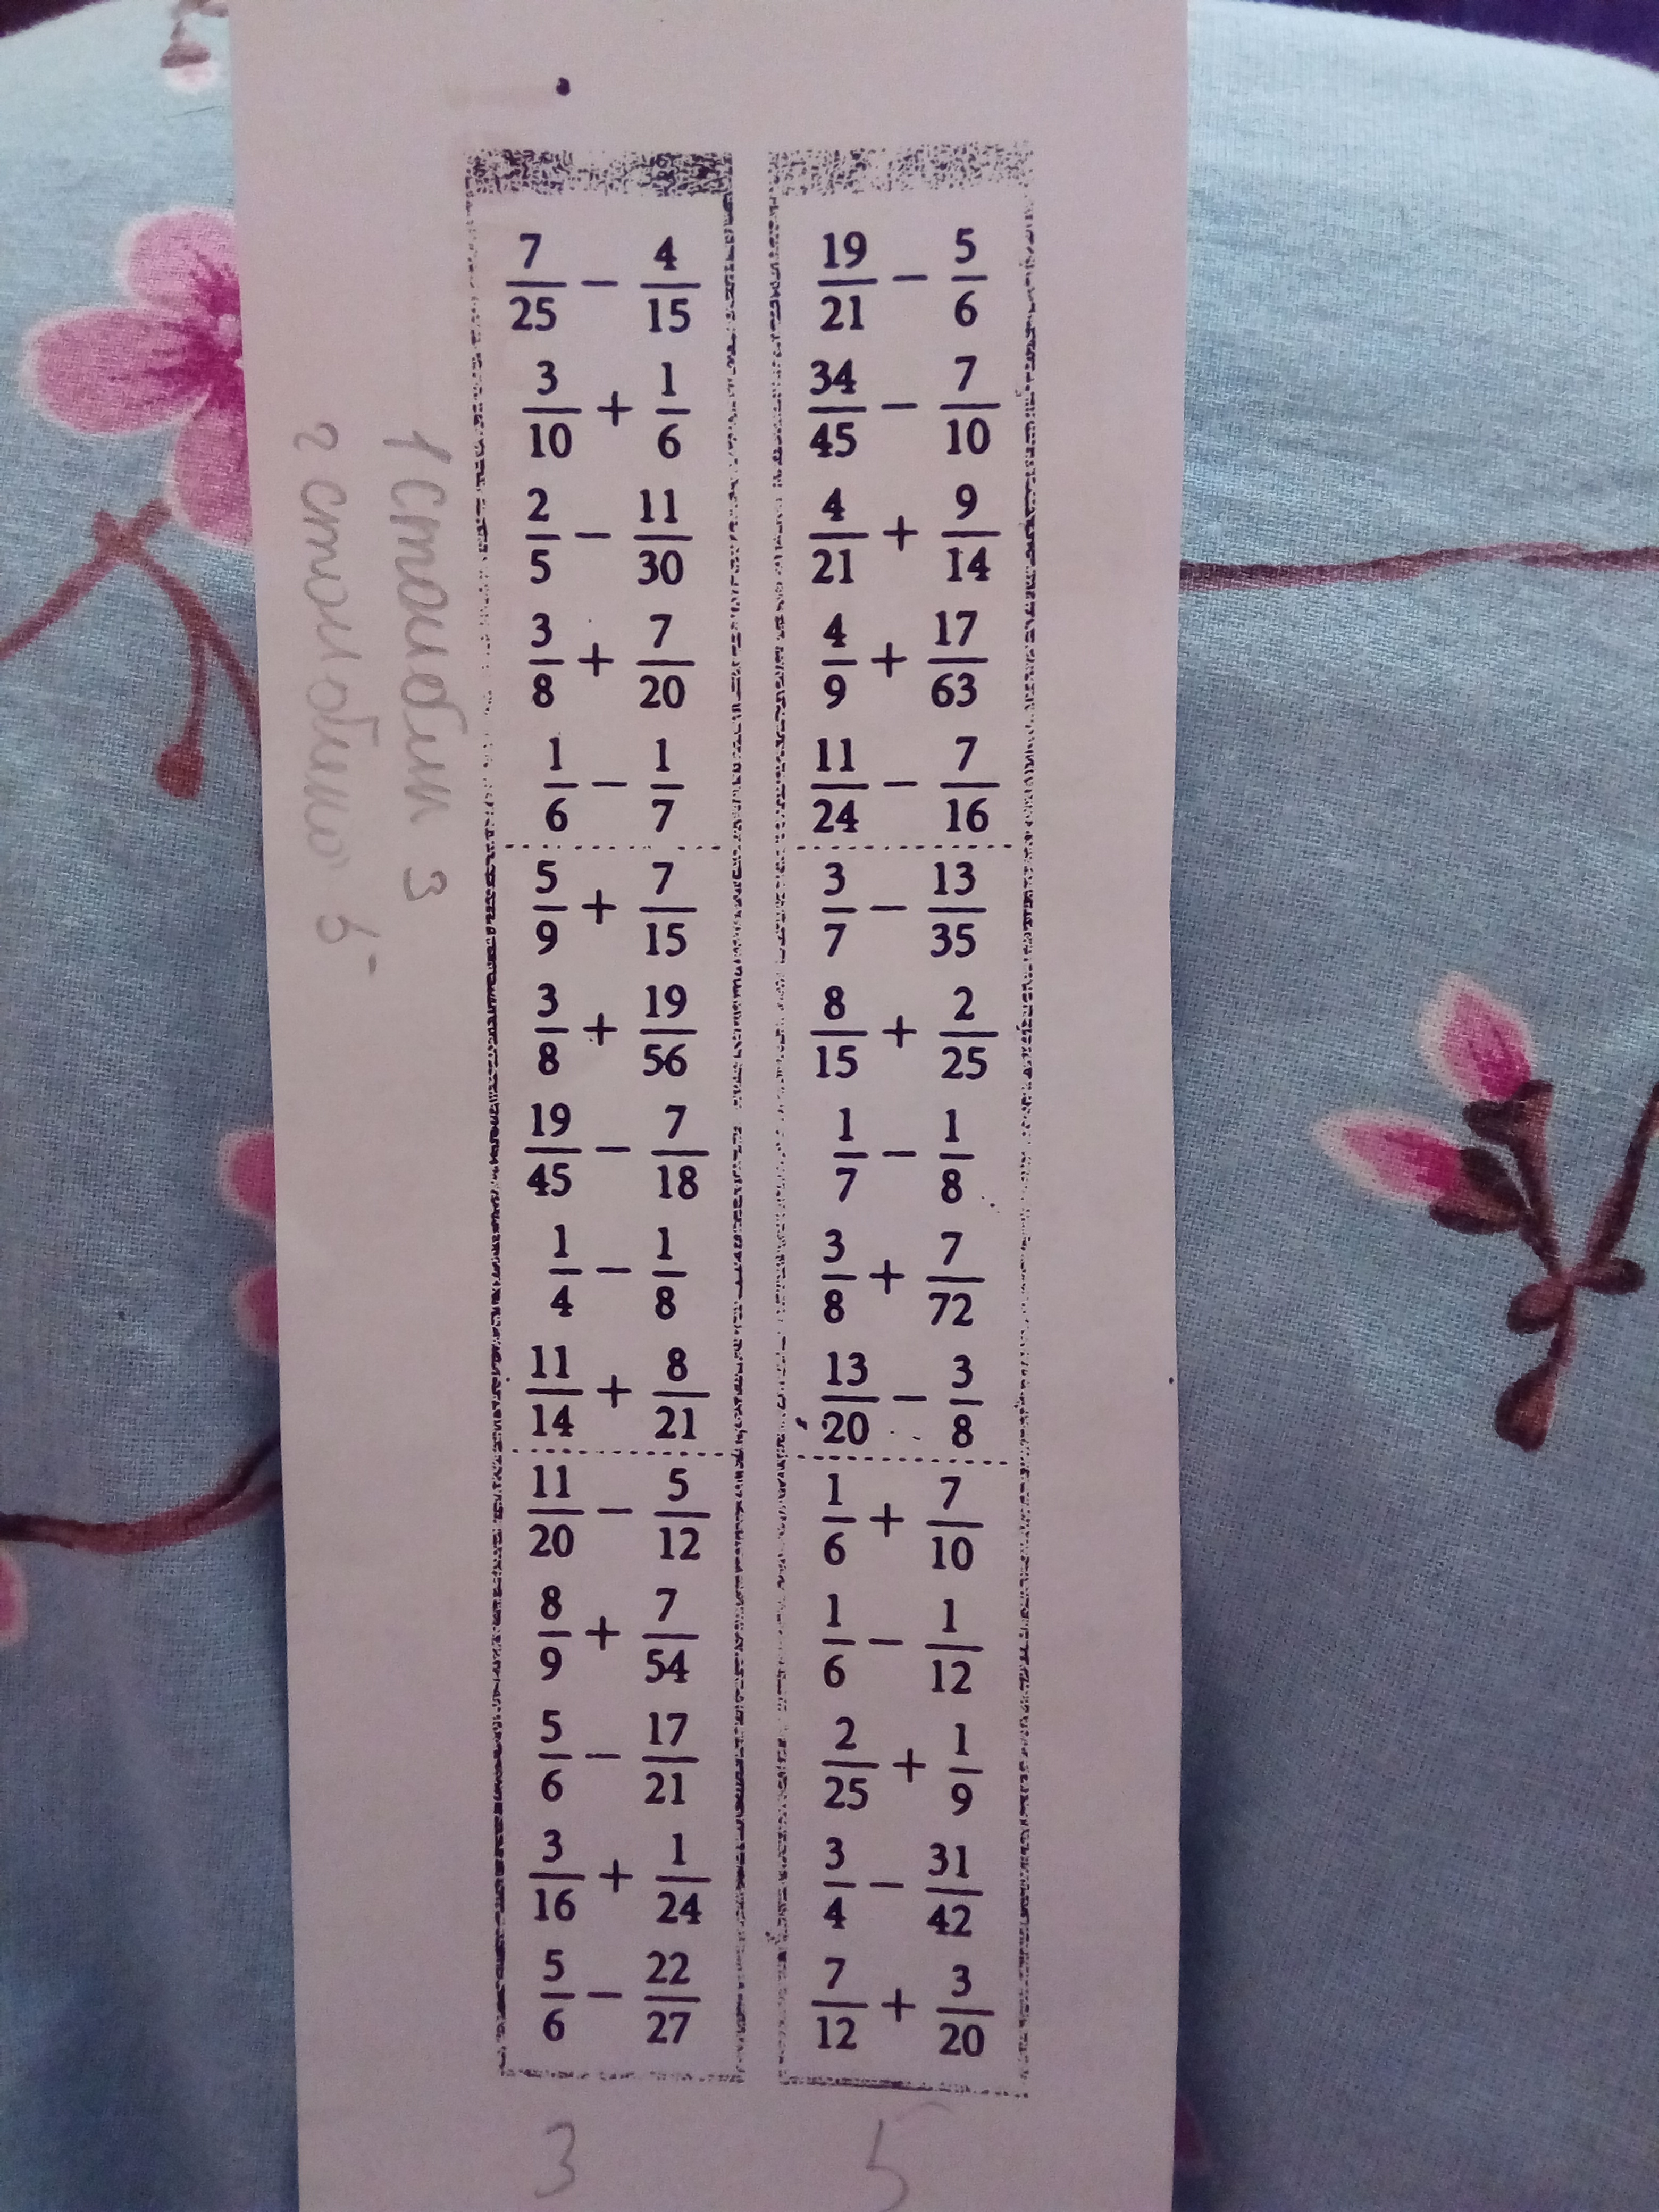 7/25 − 4/15
3/10 + 1/6
2/5 − 11/30
3/8 + 7/20
1/6 − 1/7
5/9 + 7/15
3/8 + 19/56
19/45 − 7/18
1/4 − 1/8
11/14 + 8/21
11/20 − 5/12
8/9 + 7/54
5/6 − 17/21
3/16 + 1/24
5/6 − 22/27
3
19/21 − 5/6
34/45 − 7/10
4/21 + 9/14
4/9 + 17/63
11/24 − 7/16
3/7 − 13/35
8/15 + 2/25
1/7 − 1/8
3/8 + 7/72
13/20 − 3/8
1/6 + 7/10
1/6 − 1/12
2/25 + 1/9
3/4 − 31/42
7/12 + 3/20
5
1 столбик 3
2 столбик 5